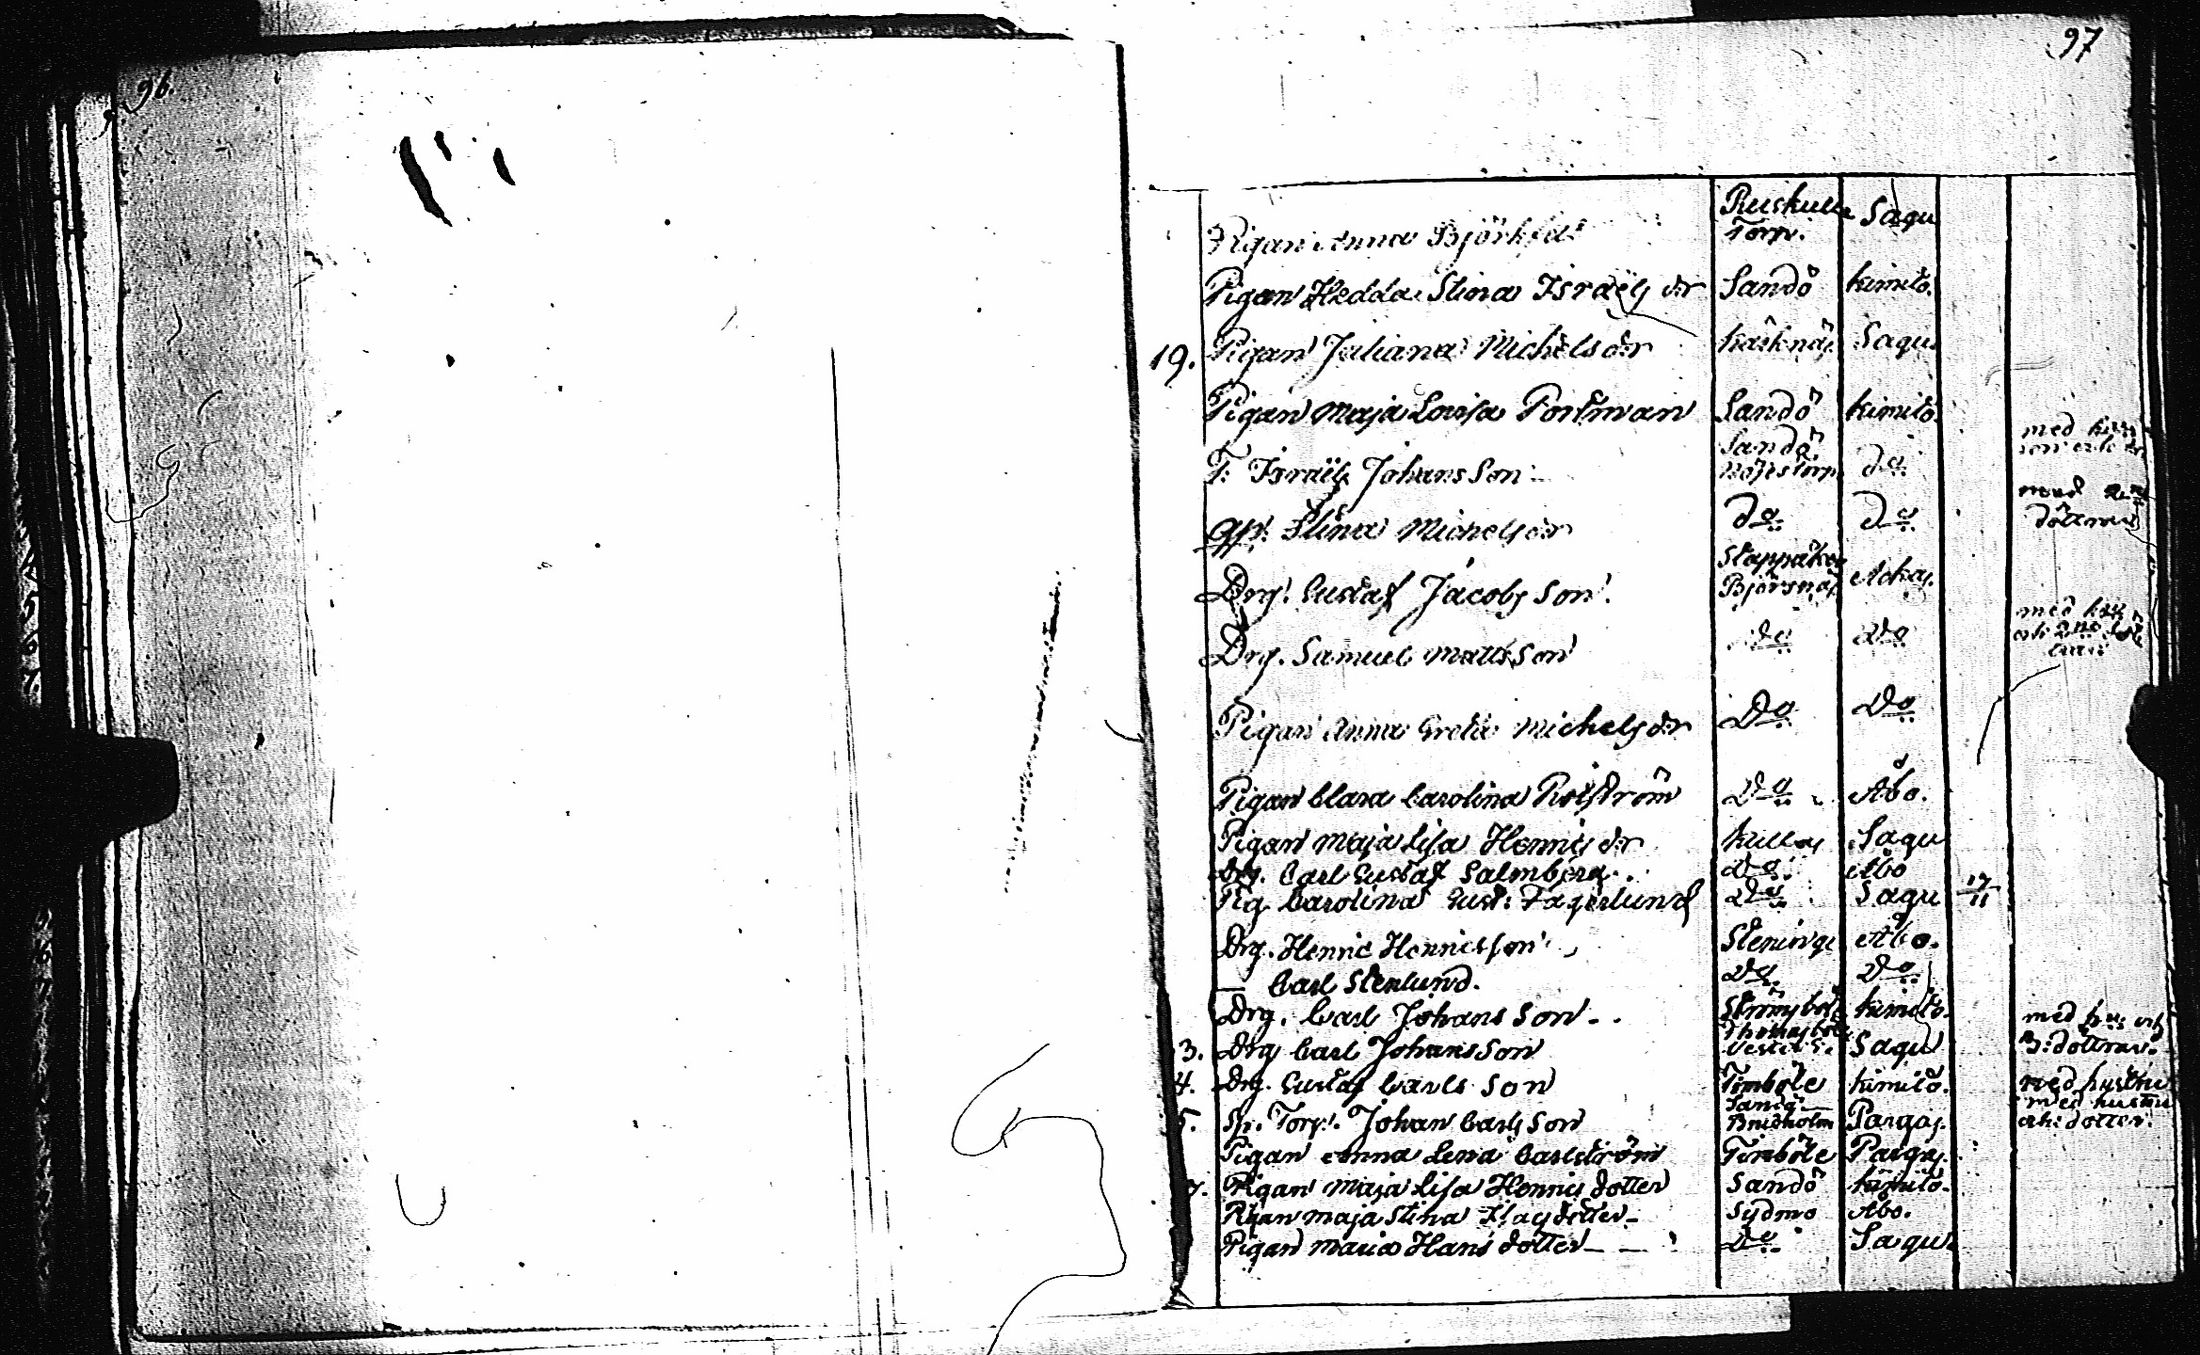 96.
97
Pigan Anna Björkqvist Ruskulla Torp. Sagu
Pigan Hedda Stina Israëls dr Sandö Kimito.
19. Pigan Juliana Michels dr Kärknäs Sagu.
Pigan Maja Lovisa Portman Sandö Kimito.
T: Israël Johans Son Sandö Torp do med
Stina Michels dr do do med döttrar
Drg. Gustaf Jacobs Son. Björsnäs
Drg. Samuel Matts Son do do med
Pigan Anna Greta Michels dr Do Do
Pigan Clara Carolina Do Åbo.
Pigan Maja Lisa Henrics dr Kullas Sagu
Drg. Carl Gustaf Salmberg Do Åbo
Pig. Carolina Gust: Fagerlund Do Sagu 17/11
Drg. Henric Henricsson Steninge Åbo.
— Carl Stenlund. Do Do
Drg. Carl Johans Son Kimito.
3. Drg Carl Johans Son Sagu med hus och 3: döttrar.
4. Drg. Gustaf Carls Son Timböle Kimito. med hustru
5. Torp. Johan Carls Son Sandö Pargas. med hustru och dotter.
Pigan Anna Lena Carlström Timböle Pargas.
7. Pigan Maja Lisa Henrics dotter Sandö Kimito.
Pigan Maja Stina dotter Sydmo Åbo.
Pigan Maria Hans dotter Do Sagu